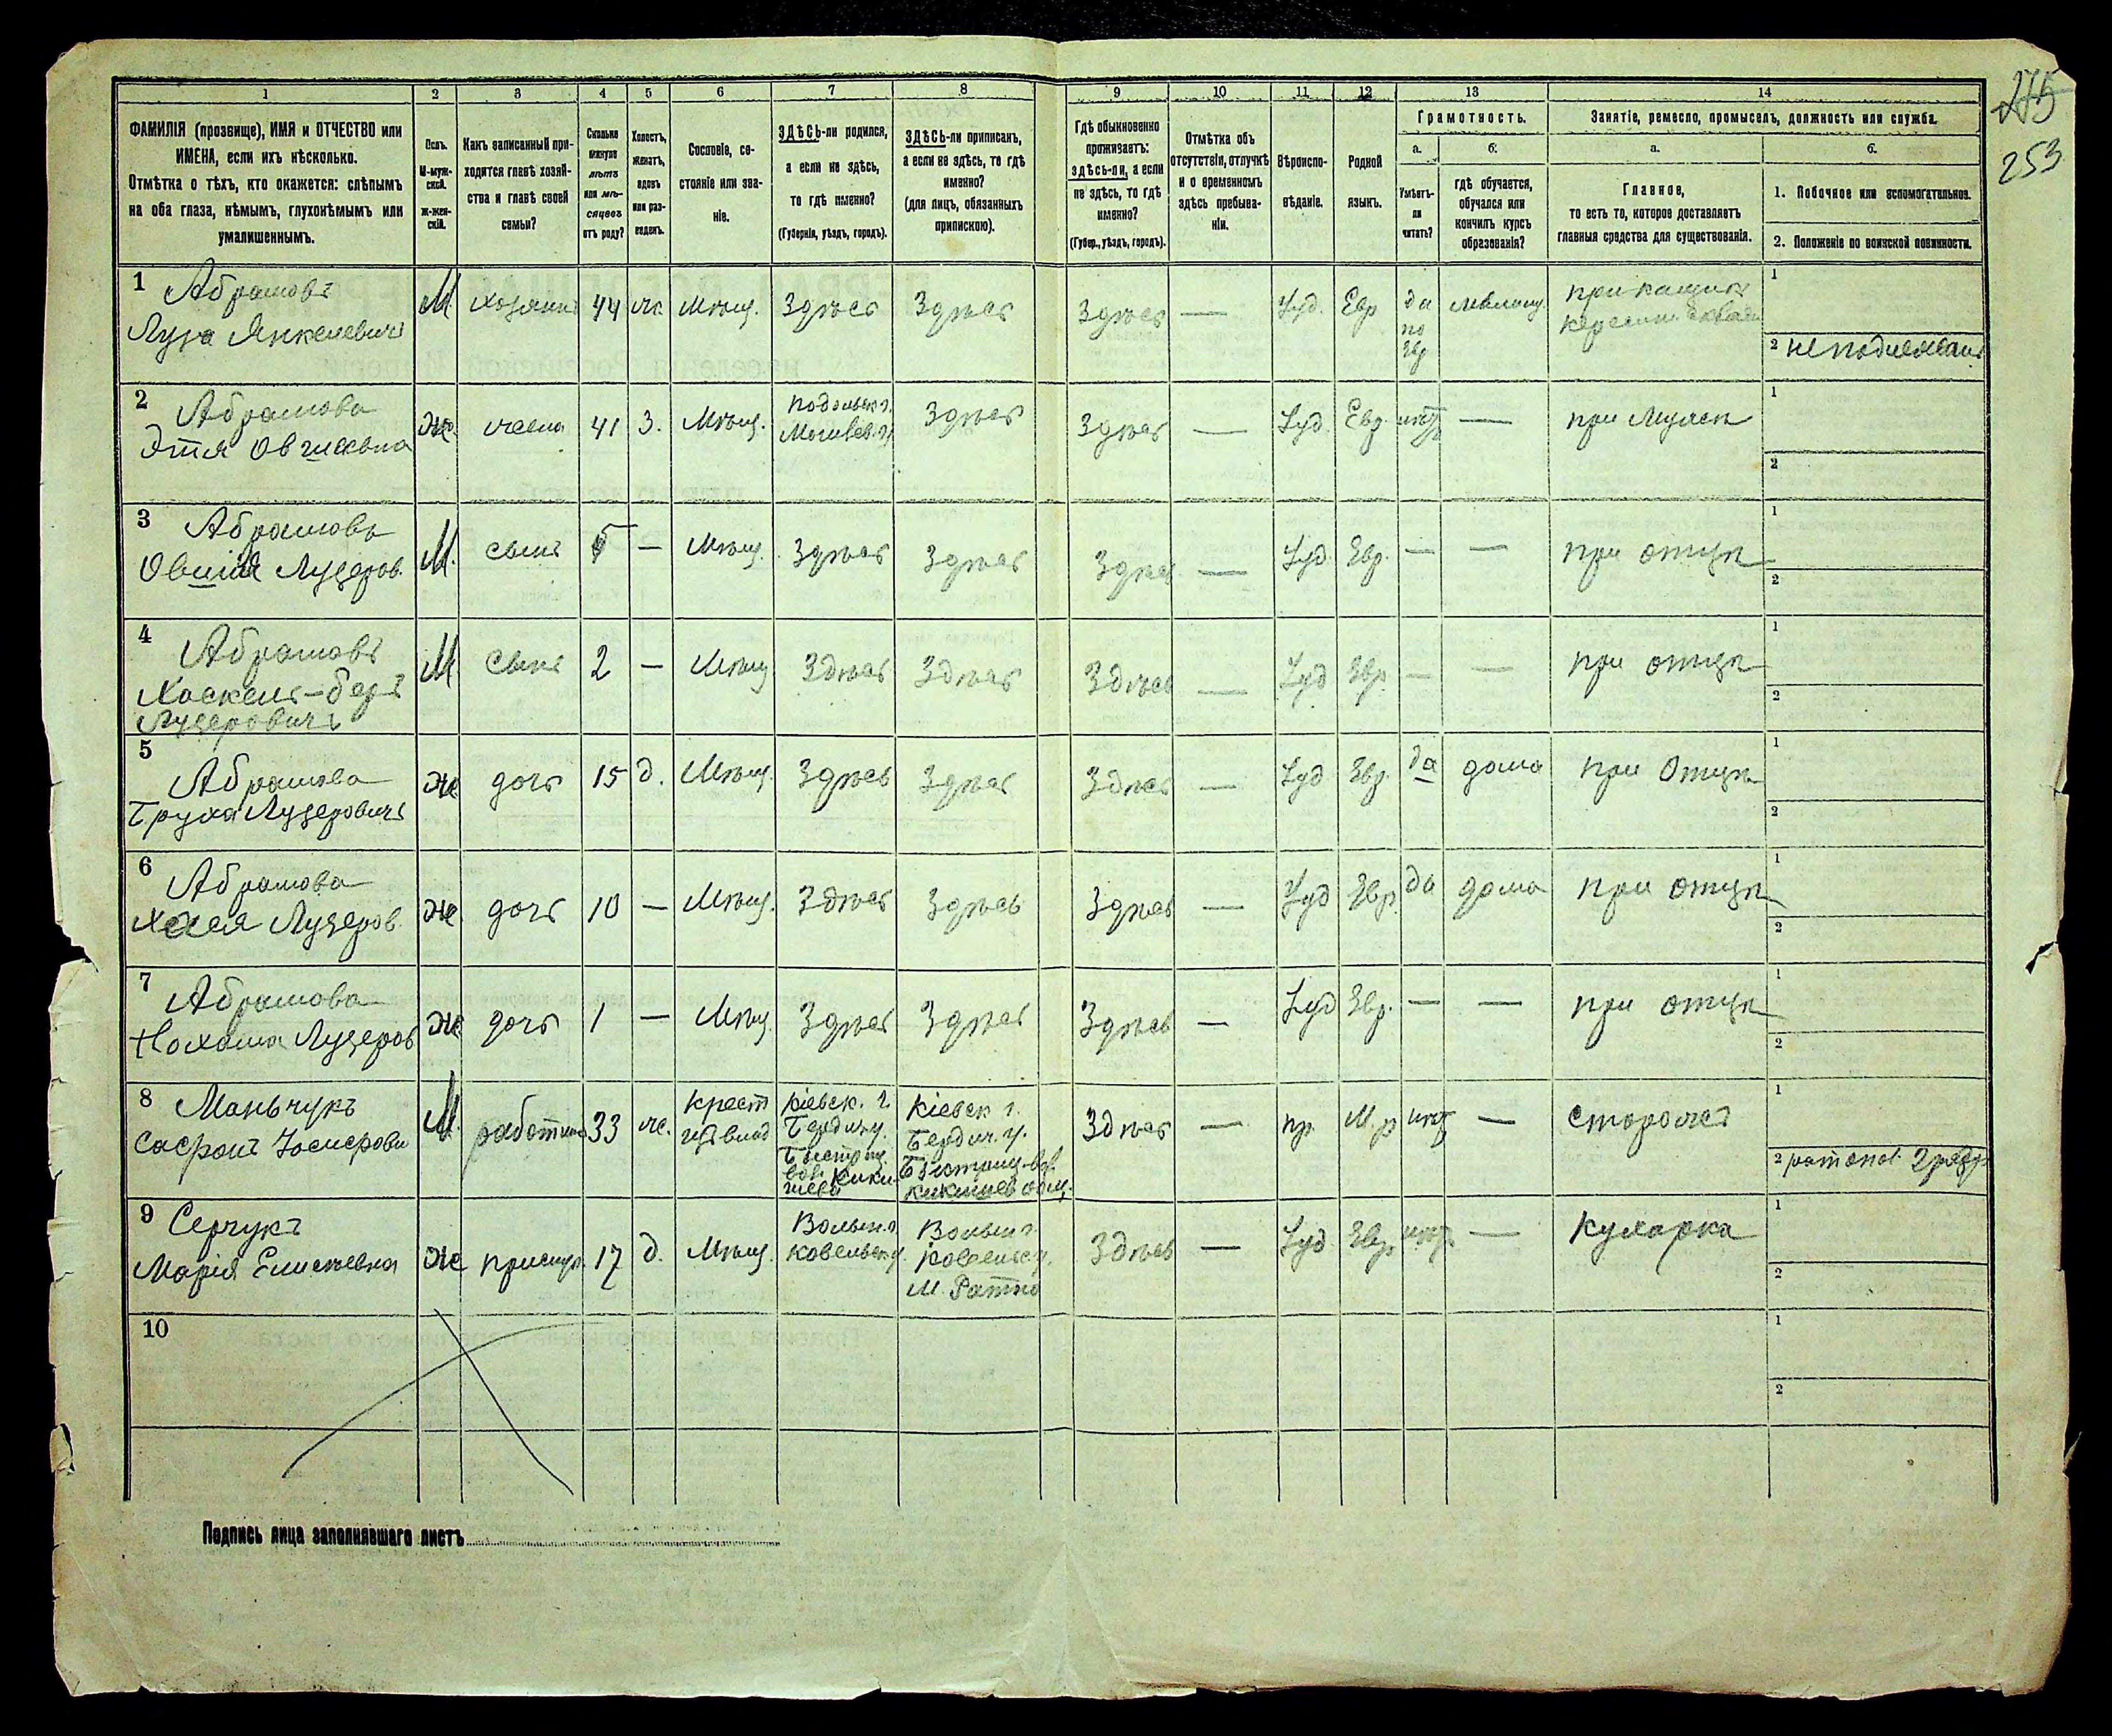 275
253
1
2
3
4
5
6
7
8
9
10
11
12
13
14
ФАМИЛІЯ (прозвище), ИМЯ и ОТЧЕСТВО или
ИМЕНА, если ихъ нѣсколько.
Отмѣтка о тѣхъ, кто окажется: слѣпымъ
на оба глаза, нѣмымъ, глухонѣмымъ или
умалишеннымъ.
Полъ.
М-муж-
ской.
ж-жен-
скій.
Какъ записанный при-
ходится главѣ хозяй-
ства и главѣ своей
семьи?
Сколько
минуло
лѣтъ
или мѣ-
сяцевъ
отъ роду?
Холостъ,
женатъ,
вдовъ
или раз-
веденъ.
Сословіе, со-
стояніе или зва-
ніе.
ЗДѢСЬ-ли родился,
а если не здѣсь,
то гдѣ именно?
(Губернія, уѣздъ, городъ).
ЗДѢСЬ-ли приписанъ,
а если не здѣсь, то гдѣ
именно?
(для лицъ, обязанныхъ
припискою).
Гдѣ обыкновенно
проживаетъ:
здѣсь-ли, а если
не здѣсь, то гдѣ
именно?
(Губер., уѣздъ, городъ).
Отмѣтка объ
отсутствіи, отлучкѣ
и о временномъ
здѣсь пребыва-
ніи.
Вѣроиспо-
вѣданіе.
Родной
языкъ.
Грамотность.
а.
Умѣетъ-
ли
читать?
б.
гдѣ обучается,
обучался или
кончилъ курсъ
образованія?
Занятіе, ремесло, промыселъ, должность или служба.
а.
Главное,
то есть то, которое доставляетъ
главныя средства для существованія.
б.
1. Побочное или вспомогательное.
2. Положеніе по воинской повинности.
1 Абрамовъ
Лузя Янкелевичъ
М хозяинъ 44 ж. Мѣщ. Здѣсь Здѣсь Здѣсь — Іуд. Евр да
по
Евр
прикащик
1
2 не подлежащ
2 Абрамова
Этля Овшіевна
Ж. жена 41 З. Мѣщ. Подольск г.
Могилев. у. Здѣсь Здѣсь — Іуд. Евр. нѣтъ — при Мужѣ
1
2
3 Абрамовъ
Овшія Лузеров.
М. сынъ 5 — Мѣщ. Здѣсь Здѣсь Здѣсь — Іуд. Евр. — — при отцѣ
1
2
4 Абрамовъ
Хаскель-беръ
Лузеровичъ
М Сынъ 2 — Мѣщ Здѣсь Здѣсь Здѣсь — Іуд Евр. — — при отцѣ
1
2
5 Абрамова
Бруха Лузеровичъ
Ж дочь 15 д. Мѣщ. Здѣсь Здѣсь Здѣсь — Іуд Евр. да дома при Отцѣ
1
2
6 Абрамова
Хая Лузеров.
Ж дочь 10 — Мѣщ. Здѣсь Здѣсь Здѣсь — Іуд Евр. да дома при отцѣ
1
2
7 Абрамова
Нохома Лузеров
Ж дочь 1 — Мѣщ. Здѣсь Здѣсь Здѣсь — Іуд Евр. — — при отцѣ
1
2
8 Маньчукъ
Сафронъ
М. работник 33 ж. крест
Кіевск. г.
Бердич у.
Кіевск г.
Бердич. у.
Здѣсь — пр. М.р нѣт — Сторожъ
1
2
9 Серчукъ
Марія
Ж прислуг. 17 д. Мѣщ. Волын. г.
Ковельск у.
Волын г.
Ковельск у.
М. Ратно
Здѣсь — Іуд. Евр. нѣт — Кухарка
1
2
10
1
2
Подпись лица заполнявшаго листъ